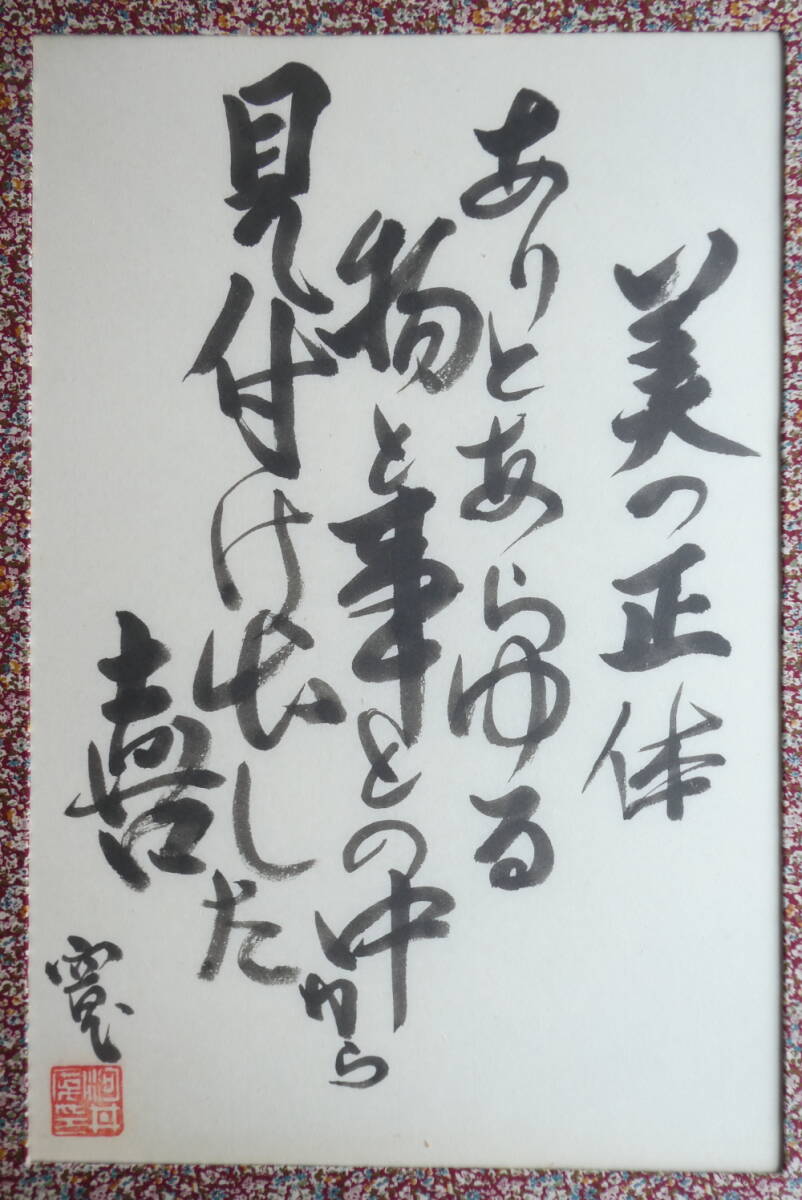 美の正体
ありとあらゆる
物と事との中から
見付け出した
喜
寛